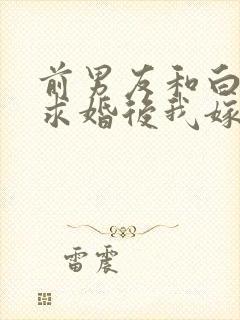 前男友和白
求婚後我嫁
雷震